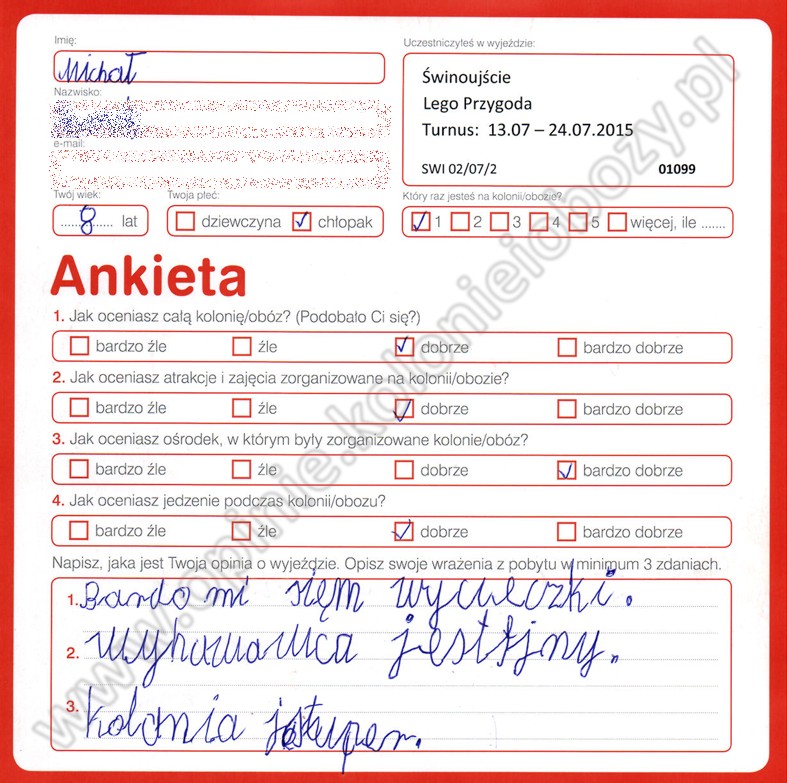 Imię:
Michał
Uczestniczyłeś w wyjeździe:
Świnoujście
Lego Przygoda
Turnus: 13.07 – 24.07.2015
SWI 02/07/2 01099
Nazwisko:
e-mail:
Twój wiek:
8 lat
Twoja płeć:
dziewczyna chłopak
Który raz jesteś na kolonii/obozie?
1 2 3 4 5 więcej, ile .......
Ankieta
1. Jak oceniasz całą kolonię/obóz? (Podobało Ci się?)
bardzo źle źle dobrze bardzo dobrze
2. Jak oceniasz atrakcje i zajęcia zorganizowane na kolonii/obozie?
bardzo źle źle dobrze bardzo dobrze
3. Jak oceniasz ośrodek, w którym były zorganizowane kolonie/obóz?
bardzo źle źle dobrze bardzo dobrze
4. Jak oceniasz jedzenie podczas kolonii/obozu?
bardzo źle źle dobrze bardzo dobrze
Napisz, jaka jest Twoja opinia o wyjeździe. Opisz swoje wrażenia z pobytu w minimum 3 zdaniach.
1. Bardo mi sięm wycieczki.
2. wyhowawca jestfjny.
3. kolonia jstuper.
www.opinie.kolonieiobozy.pl